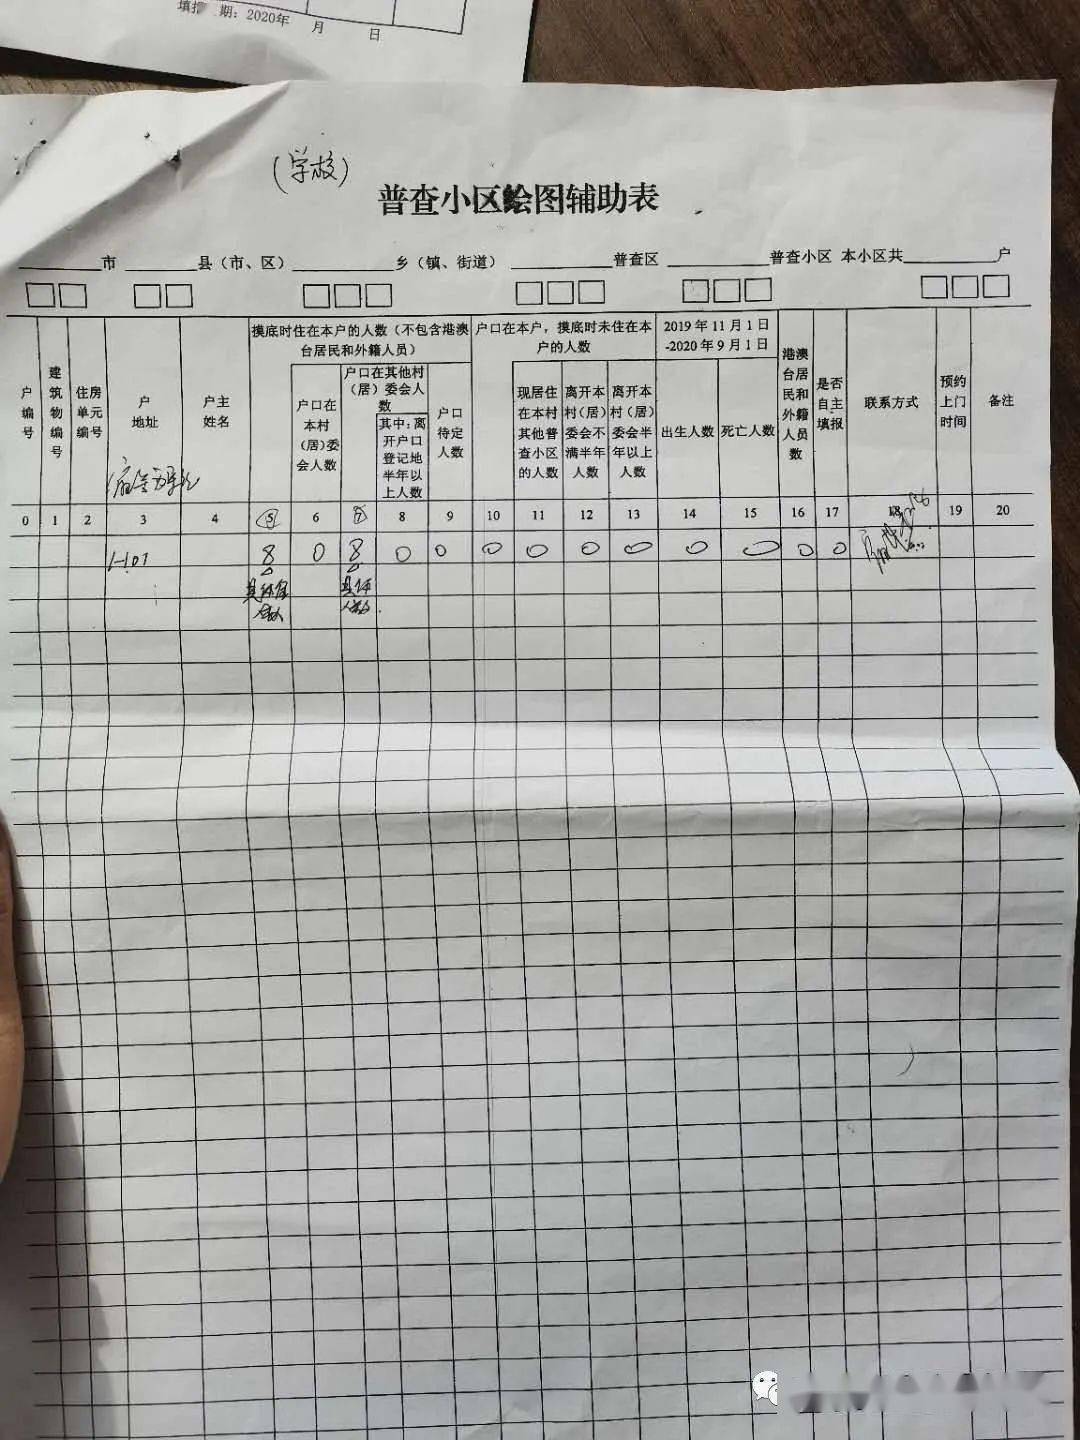 期：2020年 月 日
（学校）
普查小区绘图辅助表
市 县（市、区） 乡（镇、街道） 普查区 普查小区 本小区共 户
户编号
建筑物编号
住房单元编号
户地址
户主姓名
摸底时住在本户的人数（不包含港澳台居民和外籍人员）
户口在本村（居）委会人数
户口在其他村（居）委会人数
其中：离开户口登记地半年以上人数
户口待定人数
户口在本户，摸底时未住在本户的人数
现居住在本村其他普查小区的人数
离开本村（居）委会不满半年人数
离开本村（居）委会半年以上人数
2019年11月1日-2020年9月1日
出生人数
死亡人数
港澳台居民和外籍人员数
是否自主填报
联系方式
预约上门时间
备注
0 1 2 3 4 5 6 7 8 9 10 11 12 13 14 15 16 17 18 19 20
1-101 8 0 8 0 0 0 0 0 0 0 0 0 0
具体 人数